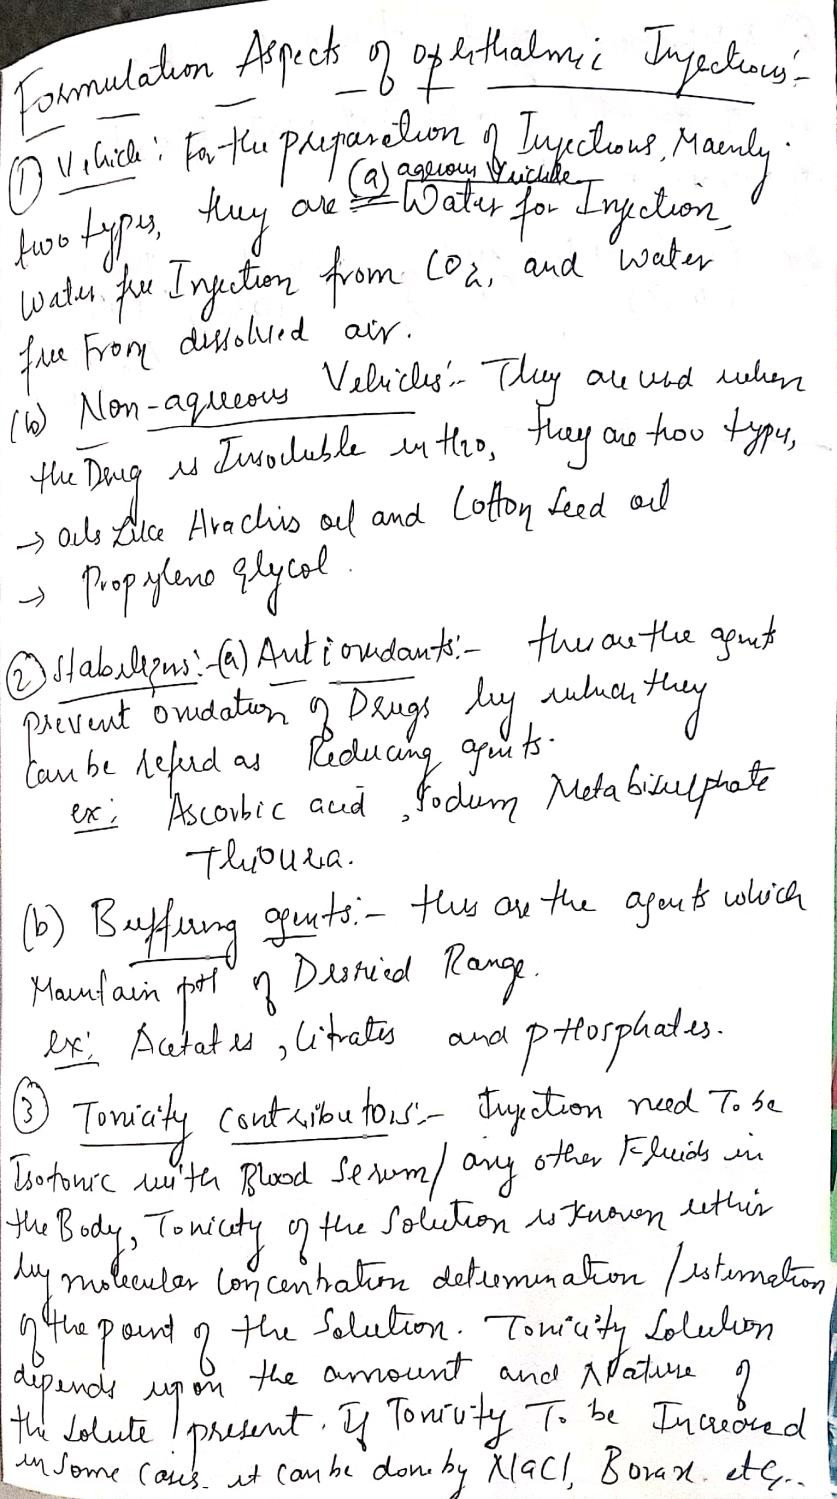 Formulation Aspects of ophthalmic Injections:-
① Vehicle: For the preparation of Injections, Mainly
two types, they are (a) aqueous Vehicle Water for Injection,
Water free Injection from CO2, and water
free From dissolved air.
(b) Non-aqueous Vehicles:- They are used when
the Drug is Insoluble in H2O, they are two types,
→ oils Like Arachis oil and Cotton seed oil
→ Propylene glycol.
② Stabilizers:-(a) Antioxidants:- these are the agents
prevent oxidation of Drugs by which they
Can be refered as Reducing agents.
ex: Ascorbic acid, Sodium Metabisulphate
Thiourea.
(b) Buffering agents:- this are the agents which
Maintain pH of Desried Range.
ex: Acetates, Citrates and pHosphates.
③ Tonicity contributors:- Injection need To be
Isotonic with Blood Serum/ any other Fluids in
the Body, Tonicity of the Solution is known
by molecular Concentration determination /
of the point of the Solution. Tonicity Solution
depends upon the amount and Nature of
the solute present. If Tonicity To be Increased
in some Cases. it can be done by NaCl, Borax. etc..